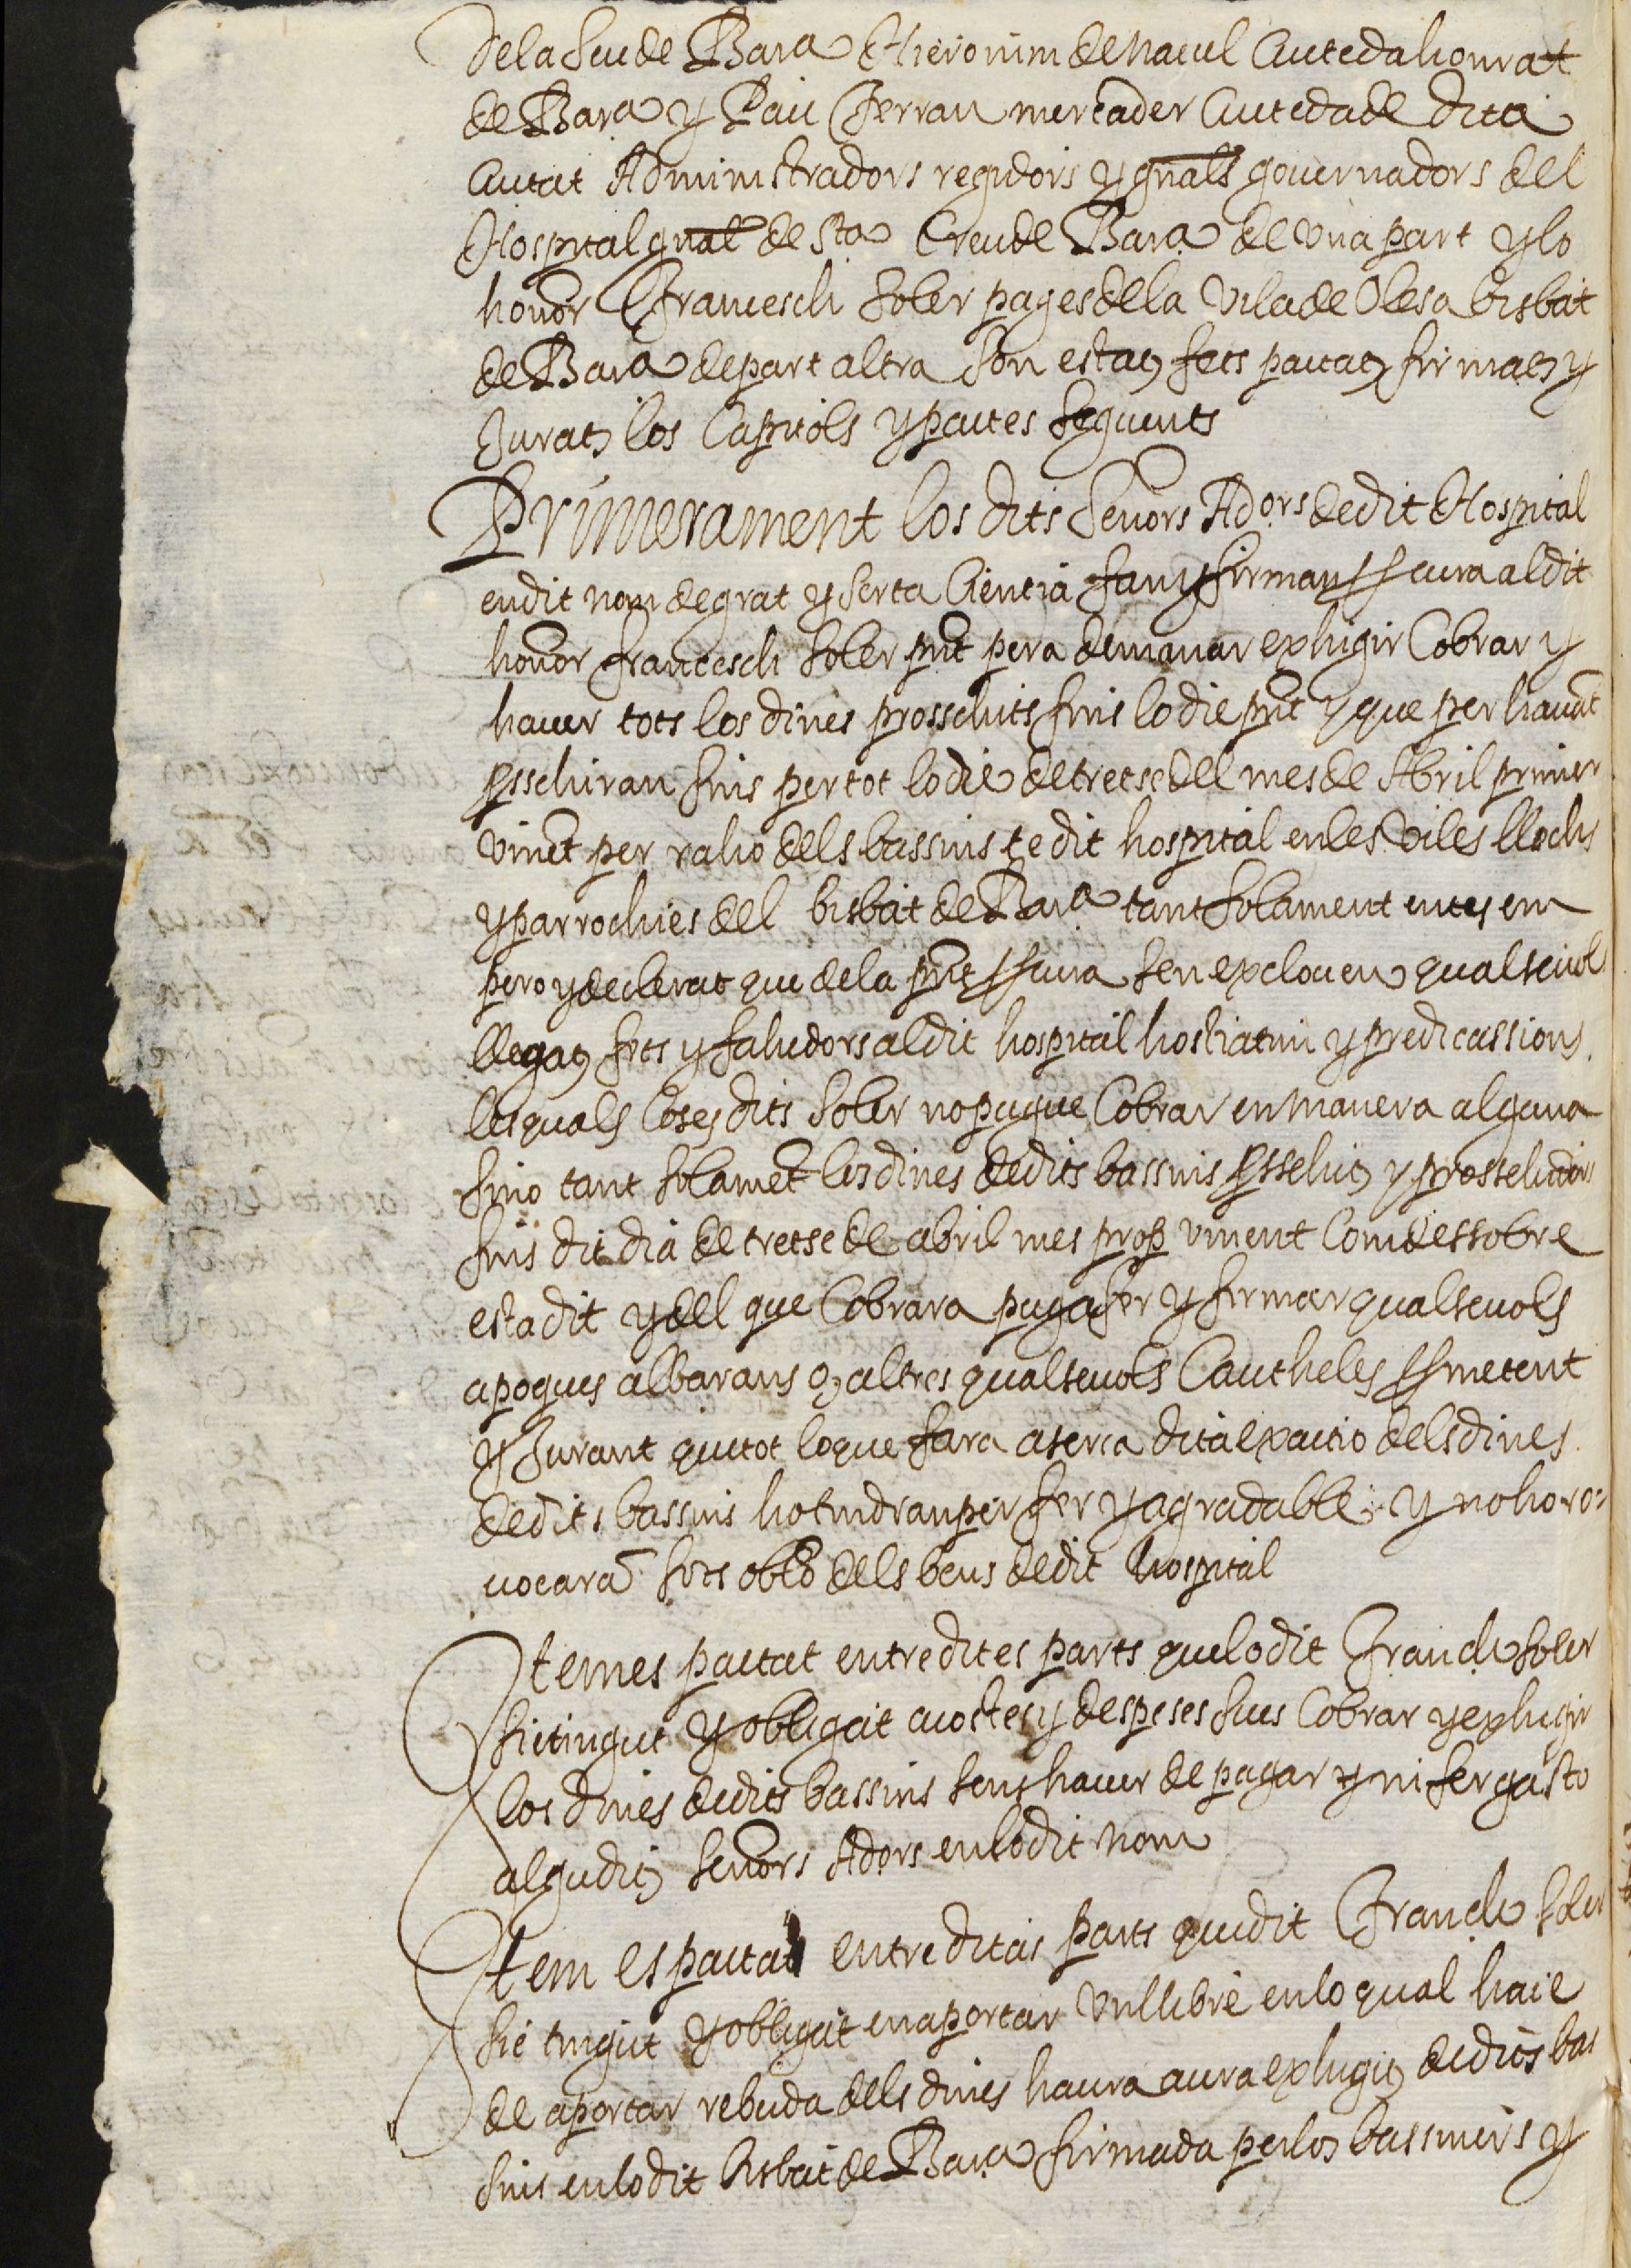 dela Seu de Bar.a Hieronim de Nauel Ciuteda honrat
de Bar.a y Pau Ferran mercader Ciuteda de dita
Ciutat Administradors regidors y gnals gouernadors del
Hospital gnal de Sta Creu de Bar.a de vna part y lo
honor Francesch Soler pages dela Vila de Olesa bisbat
de Bar.a de part altra son estats fets pactats firmats y
Jurats los Capitols y pactes seguents
Primerament los dits Senors Adors de dit Hospital
en dit nom de grat y serta Cientia fan y firman pcura al dit
honor francesch Soler pnt pera demanar exhigir Cobrar y
hauer tots los dines prossehits fins lo die pnt y que per hauant
pssehiran fins per tot lo die de tretse del mes de Abril primer
vinent per raho dels bassins de dit hospital en les Viles llochs
y parrochies del bisbat de Bar.a tant solament entes em
pero y declerat que de la pnt pcura sen exclouen qualseuol
llegats fets y fahedors al dit hospital hostiatim y predicassions
les quals Coses dits Soler no pugue Cobrar en manera alguna
sino tant solament los dines de dits bassins pssehits y prossehidors
fins dit dia de tretse de abril mes prop vinent Com dessobre
esta dit y del que Cobrara puga fer y firmar qualseuols
apoques albarans o altres qualseuols Cautheles pmetent
y Jurant que tot lo que fara aserca dita exactio dels dines
de dits bassins ho tindran per fer y agradable y no ho ro=
uocara sots oblo dels bens de dit hospital
Item es pactat entre dites parts que lo dit Franch Soler
sie tingut y obligat a costes y despeses sues Cobrar y exhigir
los dines de dits bassins sens hauer de pagar y ni fer gasto
algu dits senors Adors en lo dit nom
Item es pactat entre ditas parts que dit Franch Soler
sie tingut y obligat en aportar vn llibre en lo qual haie
de aportar rebuda dels dines haura aura exhigits de dits bas
sins en lo dit bisbat de Bar.a firmada per los bassiners y